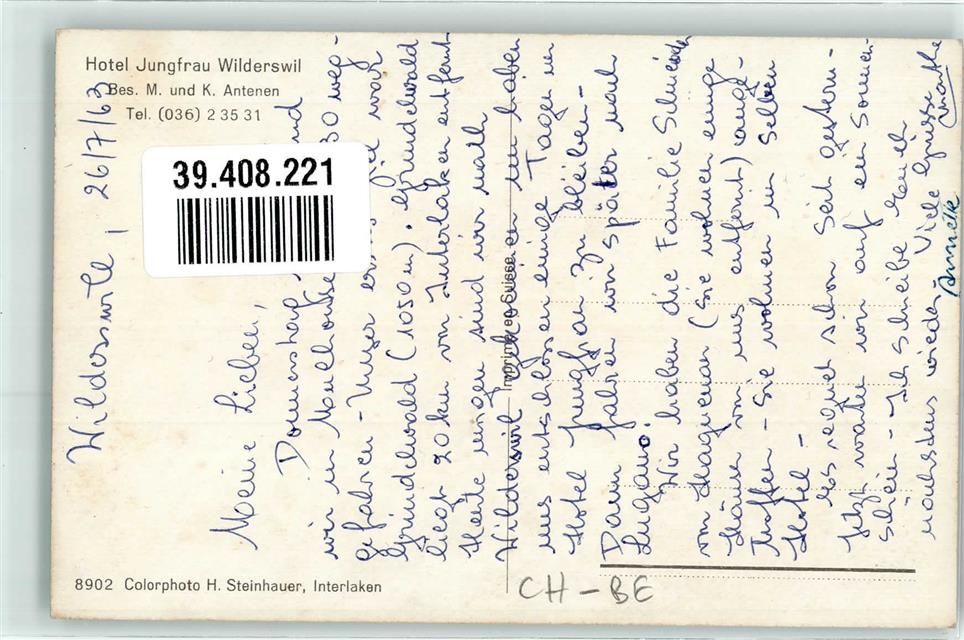 Hotel Jungfrau Wilderswil
Bes. M. und K. Antenen
Tel. (036) 2 35 31
39.408.221
Wilderswil, 26/7/63
Meine Lieben,
Donnerstag sind
wir in Mulhouse 30 weg-
gefahren - Unser erstes Ziel war
Grindelwald (1050 m). Grindelwald
liegt 20 km von Interlaken entfernt
Heute morgen sind wir nach
Wilderswil gekommen und haben
uns entschlossen einige Tagen im
Hotel Jungfrau zu bleiben -
Dann fahren wir später nach
Lugano.
Wir haben die Familie Schneider
von Haguenau (Sie wohnen einige
Häuser von uns entfernt) ange-
troffen - Sie wohnen im selben
Hotel -
Es regnet schon seit gestern -
Jetzt warten wir auf ein Sonnen-
schein - Ich schreibe Euch
nächstens wieder - Viele Grüsse
Marthe
Annelise
Imprimé en Suisse
8902 Colorphoto H. Steinhauer, Interlaken
CH-BE